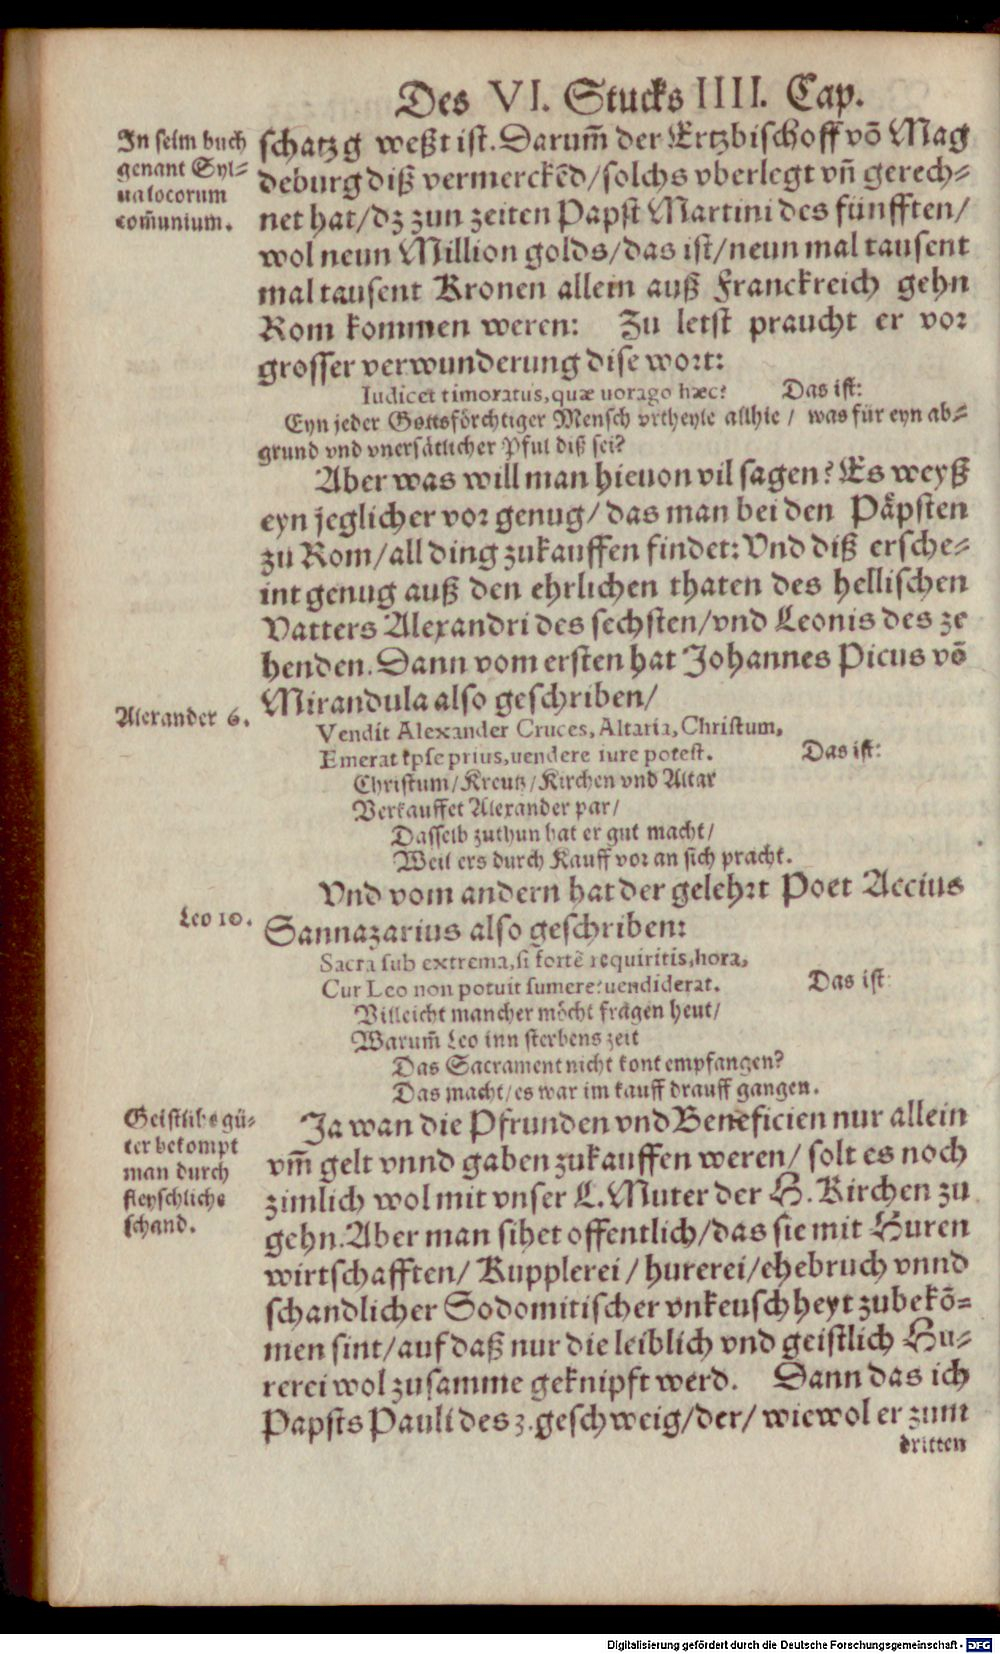 Des VI. Stucks IIII. Cap.
In seim buch
genant Syl-
ua locorum
com̃unium.
schatz g weßt ist. Darum̃ der Ertzbischoff võ Mag
deburg diß vermerckẽd/solchs vberlegt vñ gerech-
net hat/dz zun zeiten Papst Martini des fünfften/
wol neun Million golds/das ist/neun mal tausent
mal tausent Kronen allein auß Franckreich gehn
Rom kommen weren: Zu letst praucht er vor
grosser verwunderung dise wort:
Iudicet timoratus, quæ uorago hæc? Das ist:
Eyn jeder Gottsförchtiger Mensch vrtheyle allhie / was für eyn ab-
grund vnd vnersätlicher Pful diß sei?
Aber was will man hieuon vil sagen? Es weyß
eyn jeglicher vor genug/das man bei den Päpsten
zu Rom/all ding zukauffen findet: Vnd diß ersche-
int genug auß den ehrlichen thaten des hellischen
Vatters Alexandri des sechsten/vnd Leonis des ze
henden. Dann vom ersten hat Johannes Picus võ
Mirandula also geschriben/
Alexander 6.
Vendit Alexander Cruces, Altaria, Christum,
Emerat ipse prius, uendere iure potest. Das ist:
Christum/Kreutz/Kirchen vnd Altar
Verkauffet Alexander par/
Dasselb zuthun hat er gut macht/
Weil ers durch Kauff vor an sich pracht.
Vnd vom andern hat der gelehrt Poet Accius
Leo 10.
Sannazarius also geschriben:
Sacra sub extrema, si fortè requiritis, hora,
Cur Leo non potuit sumere: uendiderat. Das ist:
Villeicht mancher möcht fragen heut/
Warum̃ Leo inn sterbens zeit
Das Sacrament nicht kont empfangen?
Das macht/es war im kauff drauff gangen.
Geistliche gü-
ter bekompt
man durch
fleyschliche
schand.
Ja wan die Pfrunden vnd Beneficien nur allein
vm̃ gelt vnnd gaben zukauffen weren/ solt es noch
zimlich wol mit vnser L. Muter der H. Kirchen zu
gehn. Aber man sihet offentlich/das sie mit Huren
wirtschafften/ Kupplerei / hurerei/ehebruch vnnd
schandlicher Sodomitischer vnkeuschheyt zubekõ-
men sint/auf daß nur die leiblich vnd geistlich Hu-
rerei wol zusamme geknipft werd. Dann das ich
Papsts Pauli des 3. geschweig/der/ wiewol er zum
dritten
Digitalisierung gefördert durch die Deutsche Forschungsgemeinschaft - DFG